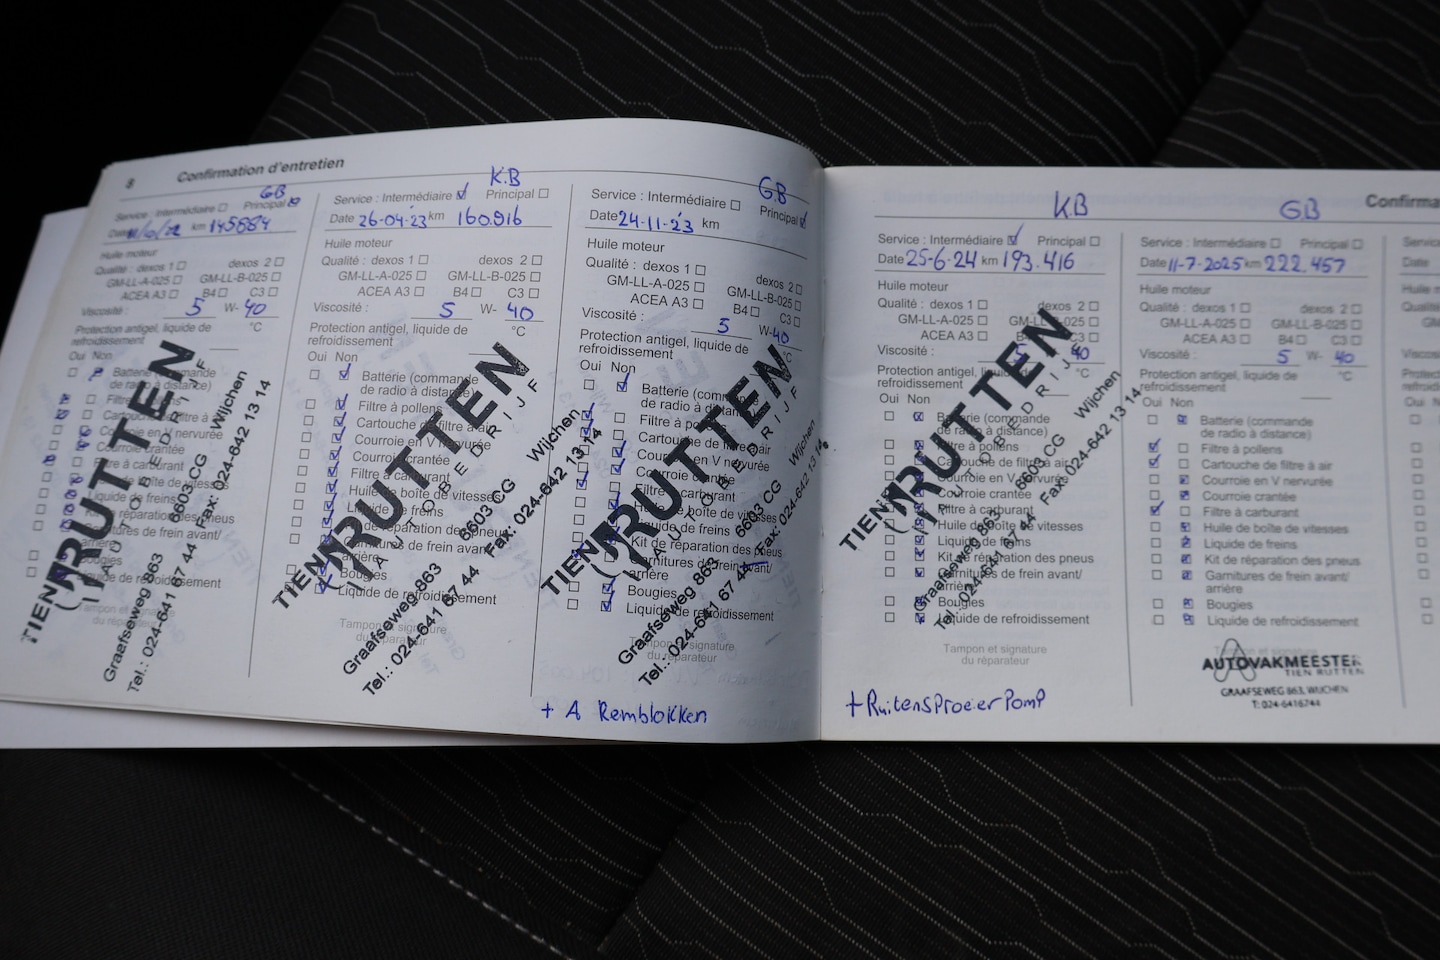 8 Confirmation d'entretien
GB
Service : Intermédiaire Principal
Date km 145884
Huile moteur
Qualité : dexos 1 dexos 2
GM-LL-A-025 GM-LL-B-025
ACEA A3 B4 C3
Viscosité : 5 W- 40
Protection antigel, liquide de refroidissement °C
Oui Non
Batterie (commande de radio à distance)
Liquide de freins
Kit de réparation des pneus
Bougies
Liquide de refroidissement
Tampon et signature du réparateur
TIEN RUTTEN
AUTOBEDRIJF
Graafseweg 863 6603 CG Wijchen
Tel.: 024-641 67 44 Fax: 024-642 13 14
K.B
Service : Intermédiaire Principal
Date 26-04-23 km 160.916
Huile moteur
Qualité : dexos 1 dexos 2
GM-LL-A-025 GM-LL-B-025
ACEA A3 B4 C3
Viscosité : 5 W- 40
Protection antigel, liquide de refroidissement °C
Oui Non
Batterie (commande
de radio à distance)
Filtre à pollens
Cartouche de filtre à air
Courroie en V nervurée
Courroie crantée
Filtre à carburant
Huile de boîte de vitesses
Liquide de freins
Kit de réparation des pneus
Garnitures de frein avant/
arrière
Bougies
Liquide de refroidissement
Tampon et signature
du réparateur
TIEN RUTTEN
AUTOBEDRIJF
Graafseweg 863 6603 CG Wijchen
Tel.: 024-641 67 44 Fax: 024-642 13 14
GB
Service : Intermédiaire Principal
Date 24-11-23 km
Huile moteur
Qualité : dexos 1 dexos 2
GM-LL-A-025 GM-LL-B-025
ACEA A3 B4 C3
Viscosité : 5 W- 40
Protection antigel, liquide de refroidissement °C
Oui Non
Batterie (commande
de radio à distance)
Filtre à pollens
Cartouche de filtre à air
Courroie en V nervurée
Courroie crantée
Filtre à carburant
Huile de boîte de vitesses
Liquide de freins
Kit de réparation des pneus
Garnitures de frein avant/
arrière
Bougies
Liquide de refroidissement
Tampon et signature
du réparateur
TIEN RUTTEN
AUTOBEDRIJF
Graafseweg 863 6603 CG Wijchen
Tel.: 024-641 67 44 Fax: 024-642 13 14
+ A Remblokken
Confirma
KB
Service : Intermédiaire Principal
Date 25-6-24 km 193.416
Huile moteur
Qualité : dexos 1 dexos 2
GM-LL-A-025 GM-LL-B-025
ACEA A3 B4 C3
Viscosité : 5 40
Protection antigel, liquide de
refroidissement °C
Oui Non
Batterie (commande
de radio à distance)
Filtre à pollens
Cartouche de filtre à air
Courroie en V nervurée
Courroie crantée
Filtre à carburant
Huile de boîte de vitesses
Liquide de freins
Kit de réparation des pneus
Garnitures de frein avant/
arrière
Bougies
Liquide de refroidissement
Tampon et signature
du réparateur
TIEN RUTTEN
AUTOBEDRIJF
Graafseweg 863 6603 CG Wijchen
Tel.: 024-641 67 44 Fax: 024-642 13 14
+Ruitensproeier Pomp
GB
Service : Intermédiaire Principal
Date 11-7-2025 km 222.457
Huile moteur
Qualité : dexos 1 dexos 2
GM-LL-A-025 GM-LL-B-025
ACEA A3 B4 C3
Viscosité : 5 W- 40
Protection antigel, liquide de
refroidissement °C
Oui Non
Batterie (commande
de radio à distance)
Filtre à pollens
Cartouche de filtre à air
Courroie en V nervurée
Courroie crantée
Filtre à carburant
Huile de boîte de vitesses
Liquide de freins
Kit de réparation des pneus
Garnitures de frein avant/
arrière
Bougies
Liquide de refroidissement
Tampon et signature
du réparateur
AUTOVAKMEESTER
TIEN RUTTEN
GRAAFSEWEG 863, WIJCHEN
T: 024-6416744